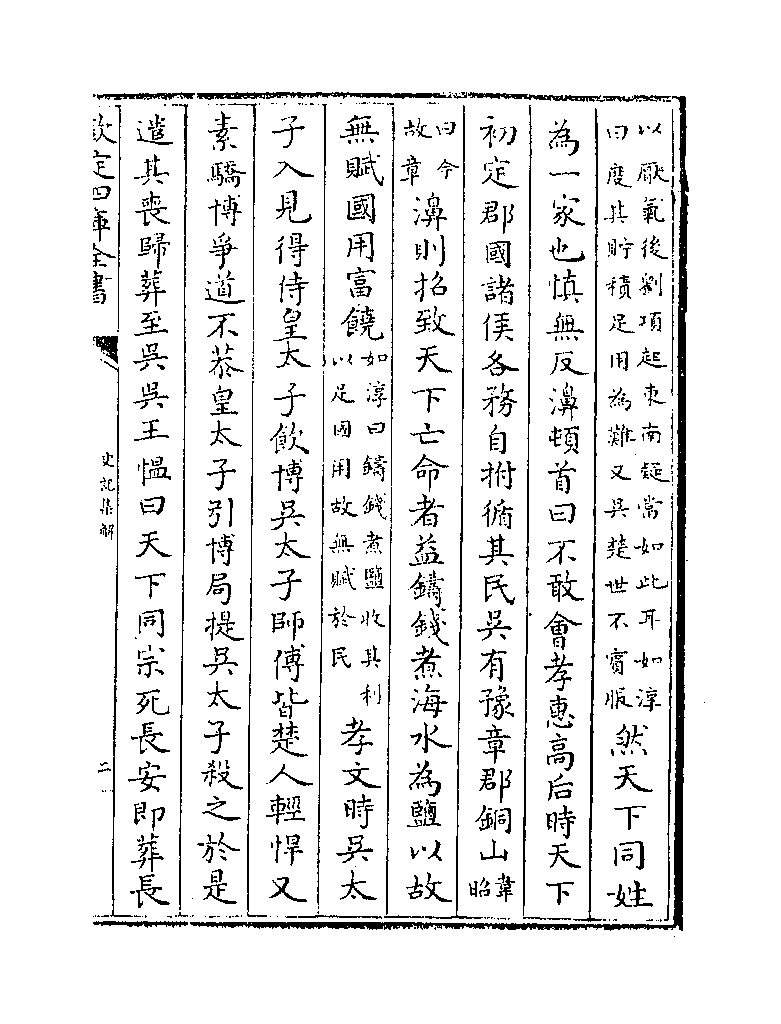 以厭氣後劉項起東南疑當如此耳如淳曰度其貯積足用為難又吳楚世不賓服然天下同姓
為一家也慎無反濞頓首曰不敢會孝惠高后時天下
初定郡國諸侯各務自拊循其民吳有豫章郡銅山韋昭
曰今故章濞則招致天下亡命者益鑄錢煮海水為鹽以故
無賦國用富饒如淳曰鑄錢煮鹽收其利以足國用故無賦於民孝文時吳太
子入見得侍皇太子飲博吳太子師傅皆楚人輕悍又
素驕博爭道不恭皇太子引博局提吳太子殺之於是
遣其喪歸葬至吳吳王愠曰天下同宗死長安即葬長
欽定四庫全書
史記集解
二